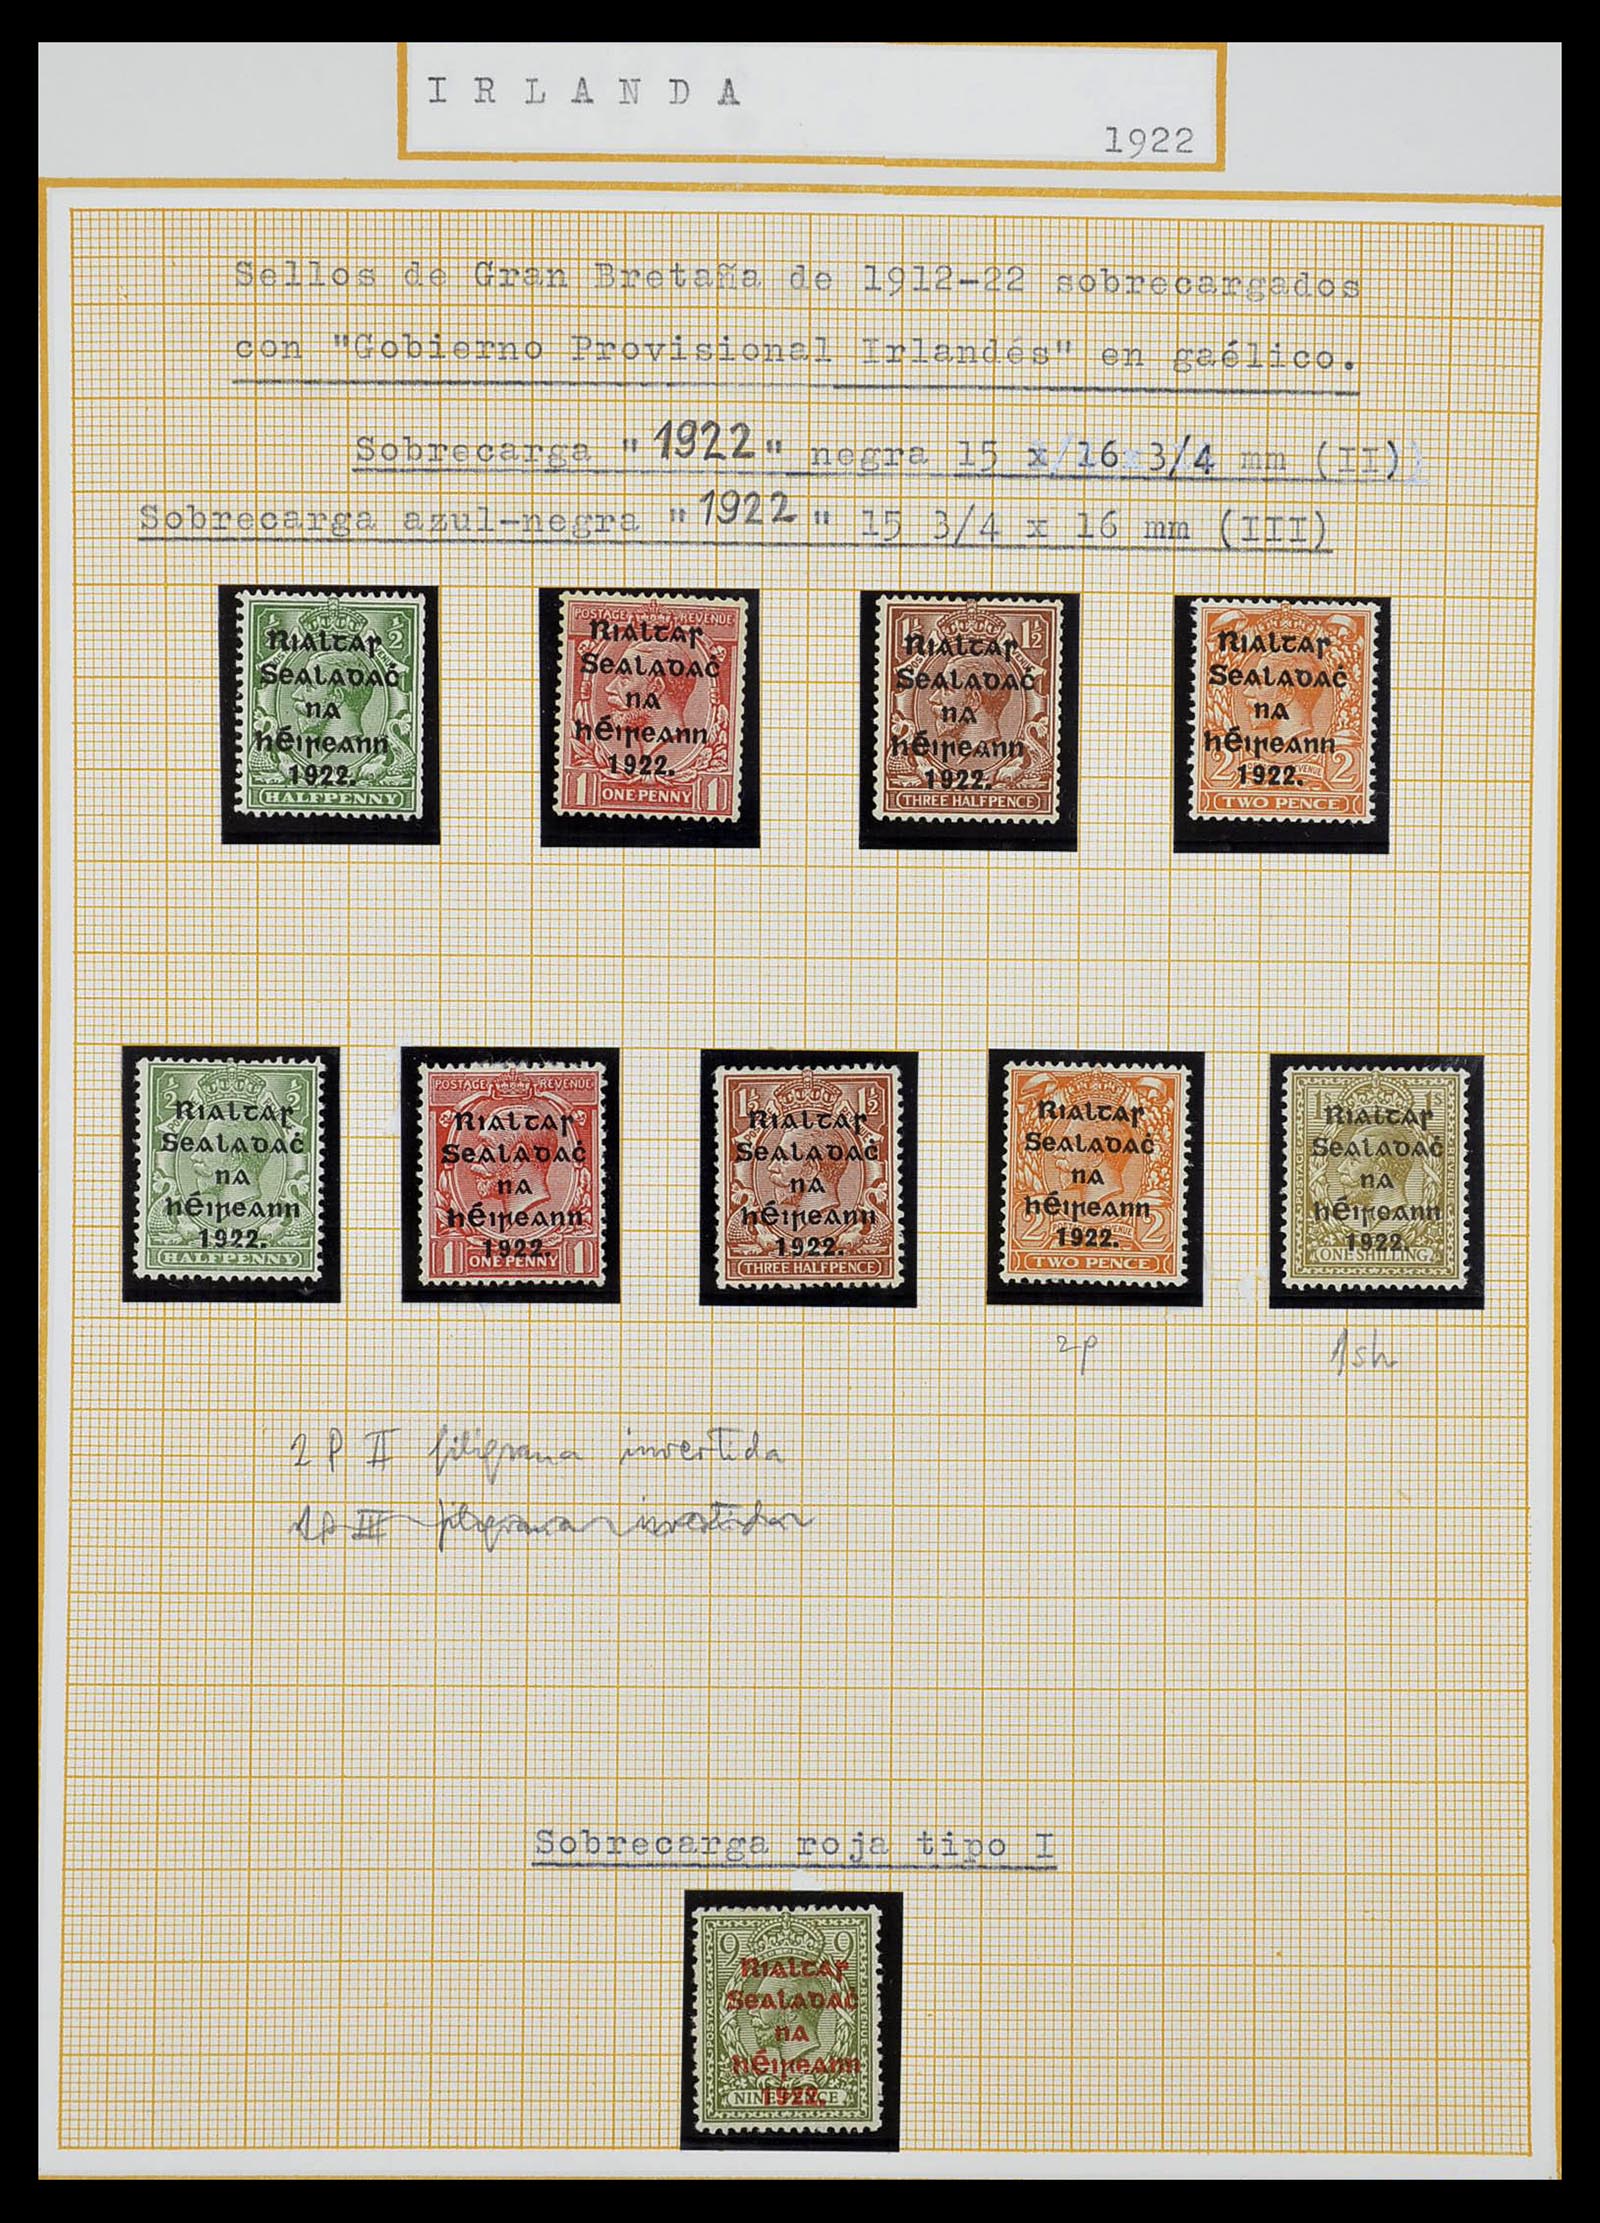 I R L A N D A
1922
Sellos de Gran Bretaña de 1912-22 sobrecargados
con "Gobierno Provisional Irlandés" en gaélico.
Sobrecarga "1922" negra 15 x 16 3/4 mm (II)
Sobrecarga azul-negra "1922" 15 3/4 x 16 mm (III)
½ ½
Rialtar
Sealadaċ
na
hÉireann
1922.
HALFPENNY
POSTAGE REVENUE
Rialtar
Sealadaċ
na
hÉireann
1922.
1 ONE PENNY 1
1½ 1½
Rialtar
Sealadaċ
na
hÉireann
1922.
THREE HALFPENCE
Rialtar
Sealadaċ
na
hÉireann
1922.
2 2
TWO PENCE
½ ½
Rialtar
Sealadaċ
na
hÉireann
1922.
HALFPENNY
POSTAGE REVENUE
Rialtar
Sealadaċ
na
hÉireann
1922.
1 ONE PENNY 1
1½ 1½
Rialtar
Sealadaċ
na
hÉireann
1922.
THREE HALFPENCE
Rialtar
Sealadaċ
na
hÉireann
1922.
2 2
TWO PENCE
1s 1s
POSTAGE REVENUE
Rialtar
Sealadaċ
na
hÉireann
1922.
ONE SHILLING
2p
1sh
2 P II filigrana invertida
1p III filigrana invertida
Sobrecarga roja tipo I
9 9
POSTAGE REVENUE
Rialtar
Sealadaċ
na
hÉireann
1922.
NINE PENCE